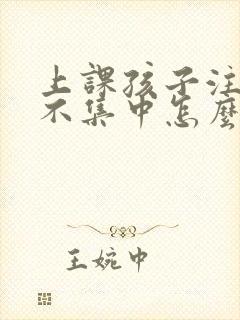 上課孩子注
不集中怎麼
王婉中